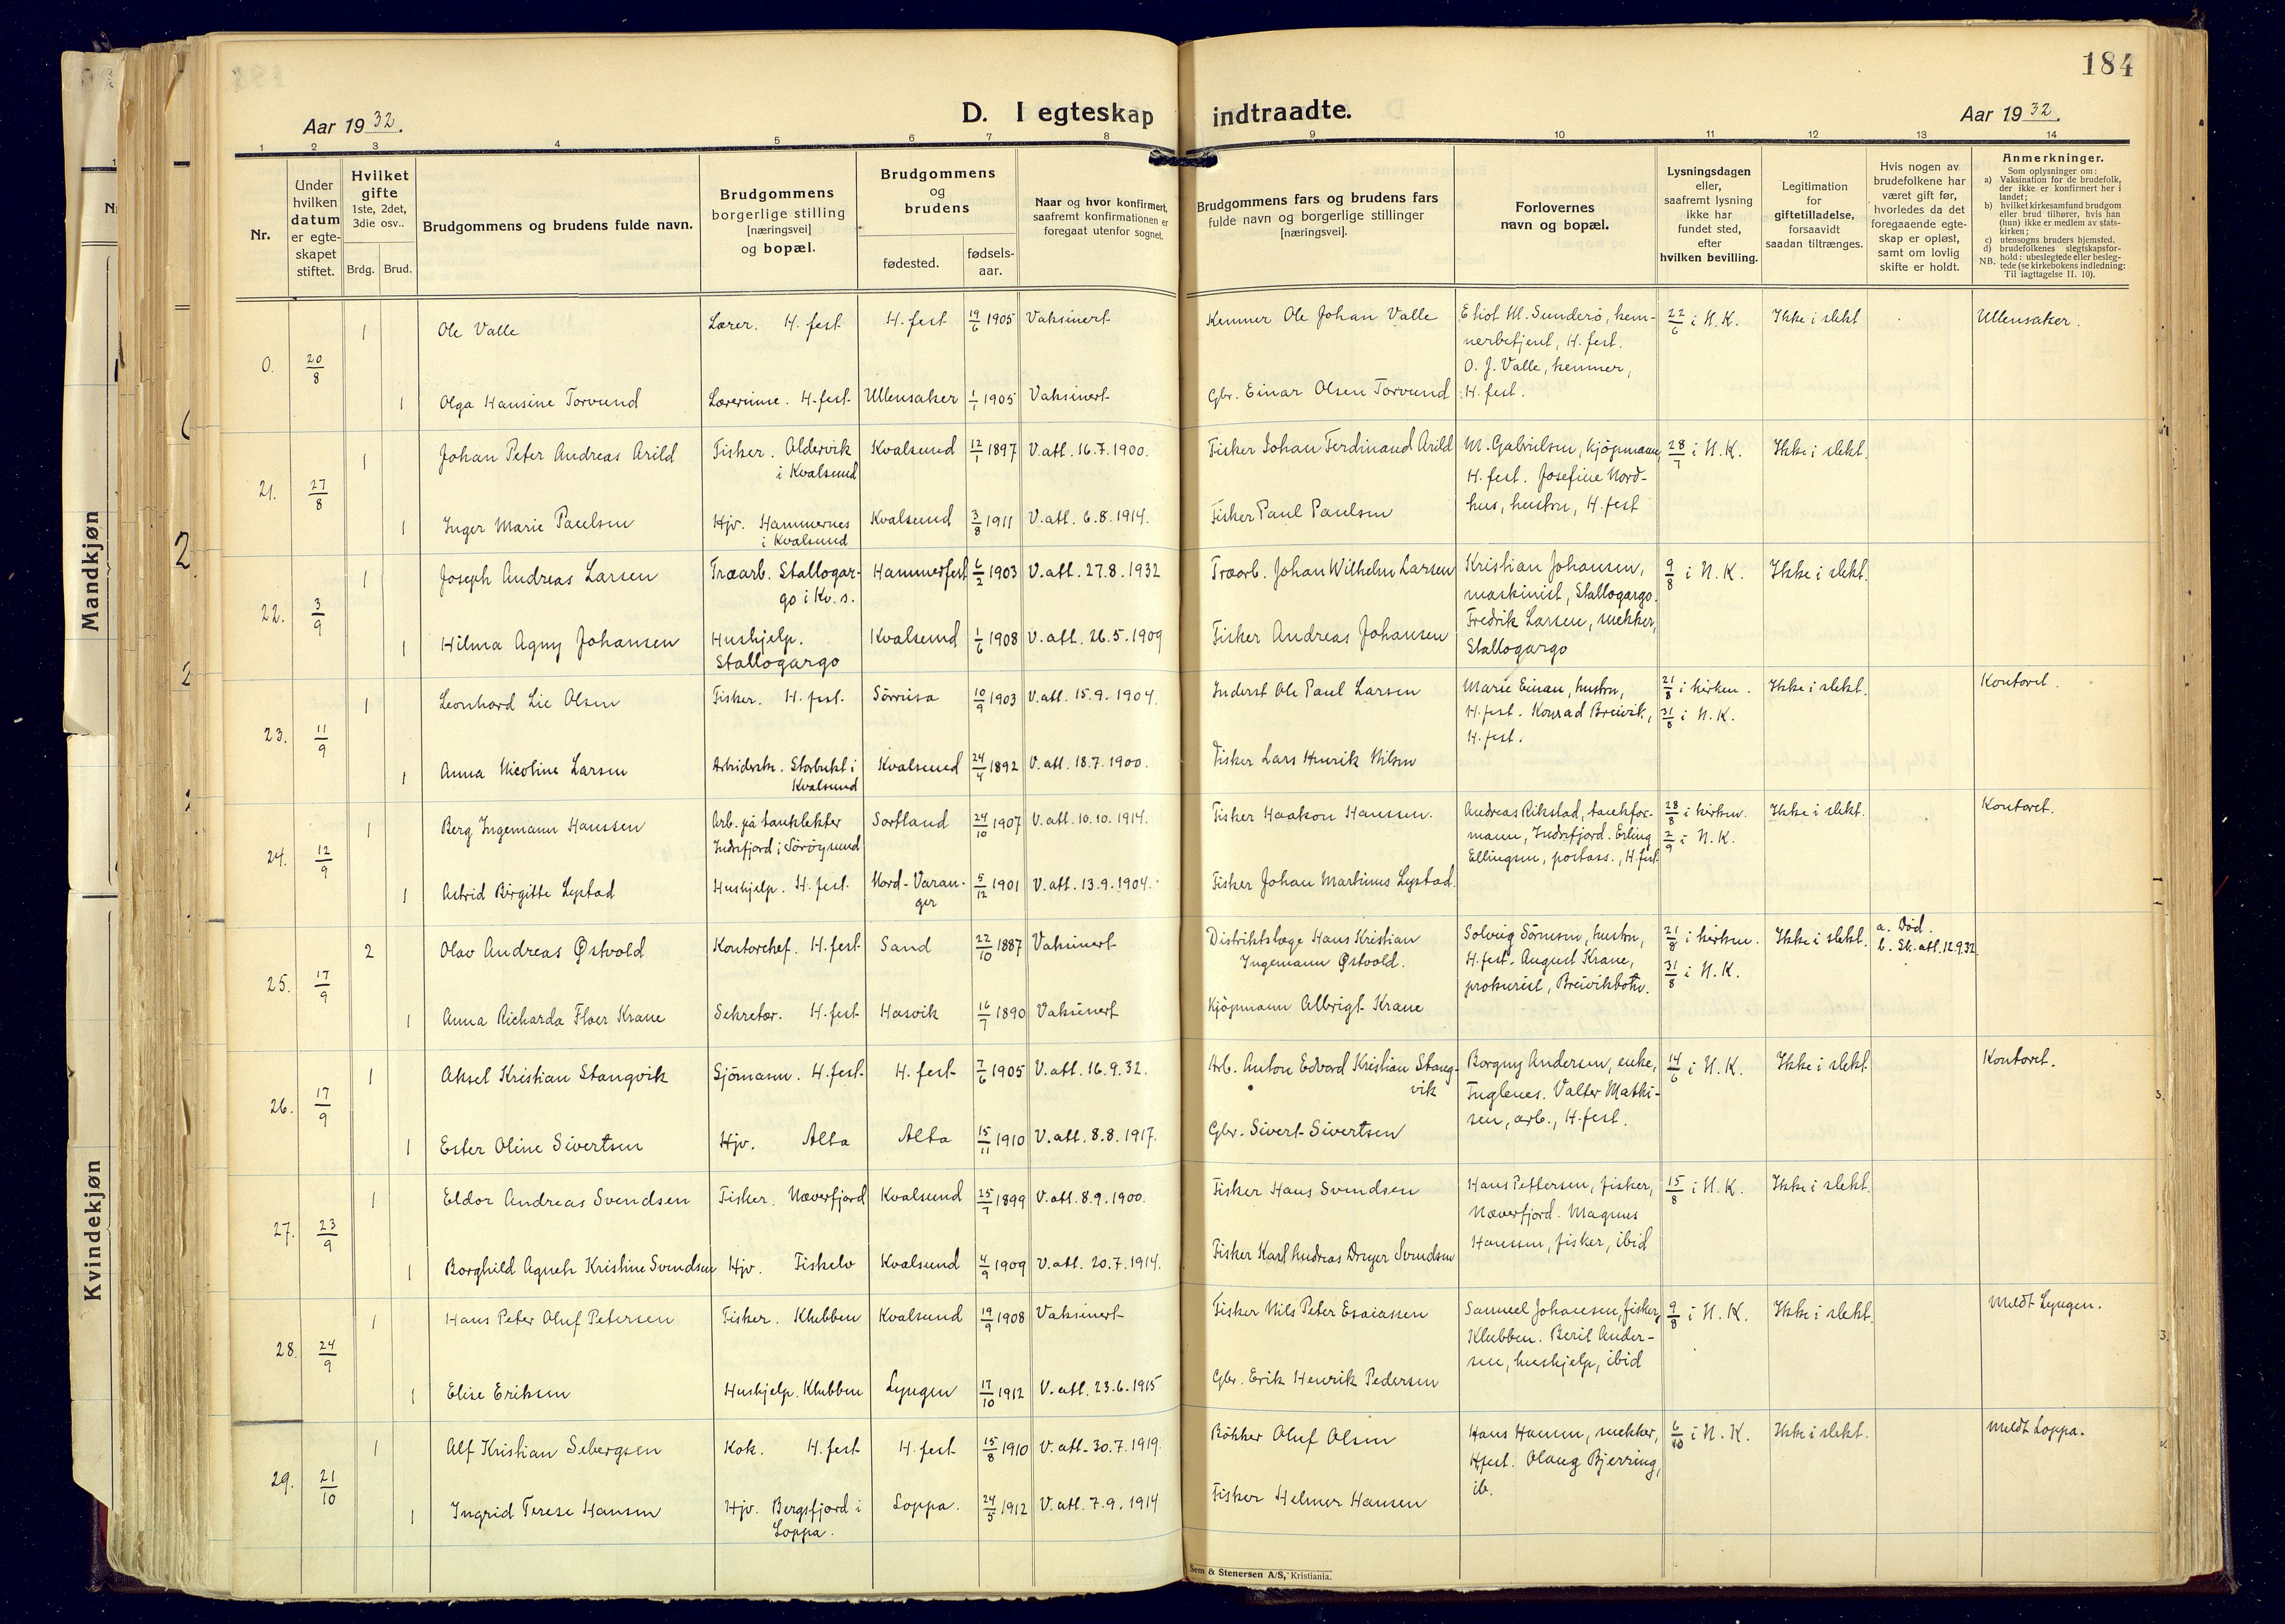 184
Aar 1932.
D. I egteskap indtraadte.
Aar 1932.
1 2 3 4 5 6 7 8 9 10 11 12 13 14
Nr.
Under hvilken datum er egteskapet stiftet.
Hvilket gifte
1ste, 2det, 3die osv..
Brdg. Brud.
Brudgommens og brudens fulde navn.
Brudgommens borgerlige stilling [næringsvei] og bopæl.
Brudgommens og brudens
fødested.
fødselsaar.
Naar og hvor konfirmert, saafremt konfirmationen er foregaat utenfor sognet.
Brudgommens fars og brudens fars fulde navn og borgerlige stillinger [næringsvei].
Forlovernes navn og bopæl.
Lysningsdagen eller, saafremt lysning ikke har fundet sted, efter hvilken bevilling.
Legitimation for giftetilladelse, forsaavidt saadan tiltrænges.
Hvis nogen av brudefolkene har været gift før, hvorledes da det foregaaende egteskap er opløst, samt om lovlig skifte er holdt.
Anmerkninger.
Som oplysninger om:
a) Vaksination for de brudefolk, der ikke er konfirmert her i landet;
b) hvilket kirkesamfund brudgom eller brud tilhører, hvis han (hun) ikke er medlem av statskirken;
c) utensogns bruders hjemsted.
d) brudefolkenes slegtskapsforhold: ubeslegtede eller beslegtede (se kirkebokens indledning:
NB. Til iagttagelse II. 10).
0. 20/8 1 Ole Valle Lærer. H. fest H. fest 19/6 1905 Vaksinert Kemner Ole Johan Valle Eliot M. Sunderö, kem- 22/6 i N. K. Ikke i slekt Ullensaker.
nerbetjent, H. fest.
O. J. Valle, kemner,
1 Olga Hansine Torvund Lærerinne. H. fest Ullensaker 1/1 1905 Vaksinert Gbr. Einar Olsen Torvund H. fest.
21. 27/8 1 Johan Peter Andreas Arild Fisker. Aldervik Kvalsund 12/1 1897 V. att. 16.7.1900. Fisker Johan Ferdinand Arild M. Gabrielsen, kjöpmann, 28/7 i N. K. Ikke i slekt.
i Kvalsund H. fest. Josefine Nord-
1 Inger Marie Paulsen Hjv. Hammernes Kvalsund 3/8 1911 V. att. 6.8.1914. Fisker Paul Paulsen hus, hustru, H. fest
i Kvalsund
22. 3/9 1 Joseph Andreas Larsen Træarb. Stallogar- Hammerfest 6/2 1903 V. att. 27.8.1932 Træarb. Johan Wilhelm Larsen Kristian Johansen, 9/8 i N. K. Ikke i slekt.
go i Kv. s. maskinist, Stallogargo.
1 Hilma Agny Johansen Hushjelp. Kvalsund 1/6 1908 V. att. 26.5.1909 Fisker Andreas Johansen Fredrik Larsen, snekker,
Stallogargo Stallogargo
23. 11/9 1 Leonhard Lie Olsen Fisker. H. fest. Sörvisa 10/9 1903 V. att. 15.9.1904. Inderst Ole Paul Larsen Marie Einan, hustru, 21/8 i kirken. Ikke i slekt. Kontoret.
H. fest. Konrad Breivik, 31/8 i N. K.
H. fest.
1 Anna Nicoline Larsen Arbeiderske. Storbukt i Kvalsund 24/4 1892 V. att. 18.7.1900. Fisker Lars Henrik Nilsen
Kvalsund
24. 12/9 1 Berg Ingemann Hanssen Arb. på tanklekter Sortland 24/10 1907 V. att. 10.10.1914. Fisker Haakon Hanssen. Andreas Rikstad, tankfor- 28/8 i kirken. Ikke i slekt. Kontoret.
Indrefjord i Söröysund mann, Indrefjord. Erling 2/9 i N. K.
Ellingsen, postass., H. fest.
1 Astrid Birgitte Lystad Hushjelp. H. fest. Nord-Varan- 5/12 1901 V. att. 13.9.1904. Fisker Johan Martinus Lystad.
ger
25. 17/9 2 Olav Andreas Østvold Kontorchef. H. fest Sand 22/10 1887 Vaksinert Distriktslæge Hans Kristian Solveig Sörensen, hustru, 21/8 i kirken. Ikke i slekt. a. Död.
Ingemann Østvold. H. fest. August Krane, 31/8 i N. K. b. Sk. att. 12.9.32.
prokurist, Breivikbotn.
1 Anna Richarda Floer Krane Sekretær. H. fest Hasvik 16/7 1890 Vaksinert Kjöpmann Albrigt Krane
26. 17/9 1 Aksel Kristian Stangvik Sjömann. H. fest. H. fest 7/6 1905 V. att. 16.9.32. Arb. Anton Edvard Kristian Stang- Borgny Andersen, enke, 14/6 i N. K. Ikke i slekt Kontoret.
vik Fuglenes. Valter Mathi-
1 Ester Oline Sivertsen Hjv. Alta Alta 15/11 1910 V. att. 8.8.1917. Gbr. Sivert Sivertsen sen, arb., H. fest.
27. 23/9 1 Eldor Andreas Svendsen Fisker. Næverfjord Kvalsund 25/7 1899 V. att. 8.9.1900. Fisker Hans Svendsen Hans Pettersen, fisker, 15/8 i N. K. Ikke i slekt.
Næverfjord. Magnus
1 Borghild Agneth Kristine Svendsen Hjv. Fiskelv Kvalsund 4/9 1909 V. att. 20.7.1914. Fisker Karl Andreas Dreyer Svendsen Hanssen, fisker, ibid
28. 24/9 1 Hans Peter Oluf Petersen Fisker. Klubben Kvalsund 19/9 1908 Vaksinert Fisker Nils Peter Esaiassen Samuel Johansen, fisker, 9/8 i N. K. Ikke i slekt. Meldt Lyngen.
Klubben. Beril Ander-
sen, hushjelp, ibid
1 Elise Eriksen Hushjelp. Klubben Lyngen 17/10 1912 V. att. 23.6.1915 Gbr. Erik Henrik Pedersen
29. 21/10 1 Alf Kristian Sebergsen Kok. H. fest H. fest 15/8 1910 V. att. 30.7.1919. Bökker Oluf Olsen Hans Hansen, snekker, 6/10 i N. K. Ikke i slekt. Meldt Loppa.
H. fest. Olaug Bjerring,
ib.
1 Ingrid Terese Hansen Hjv. Bergsfjord i Loppa. 24/5 1912 V. att. 7.9.1914 Fisker Helmer Hansen
Loppa.
Sem & Stenersen A/S, Kristiania.
Mandkjøn
Kvindekjøn